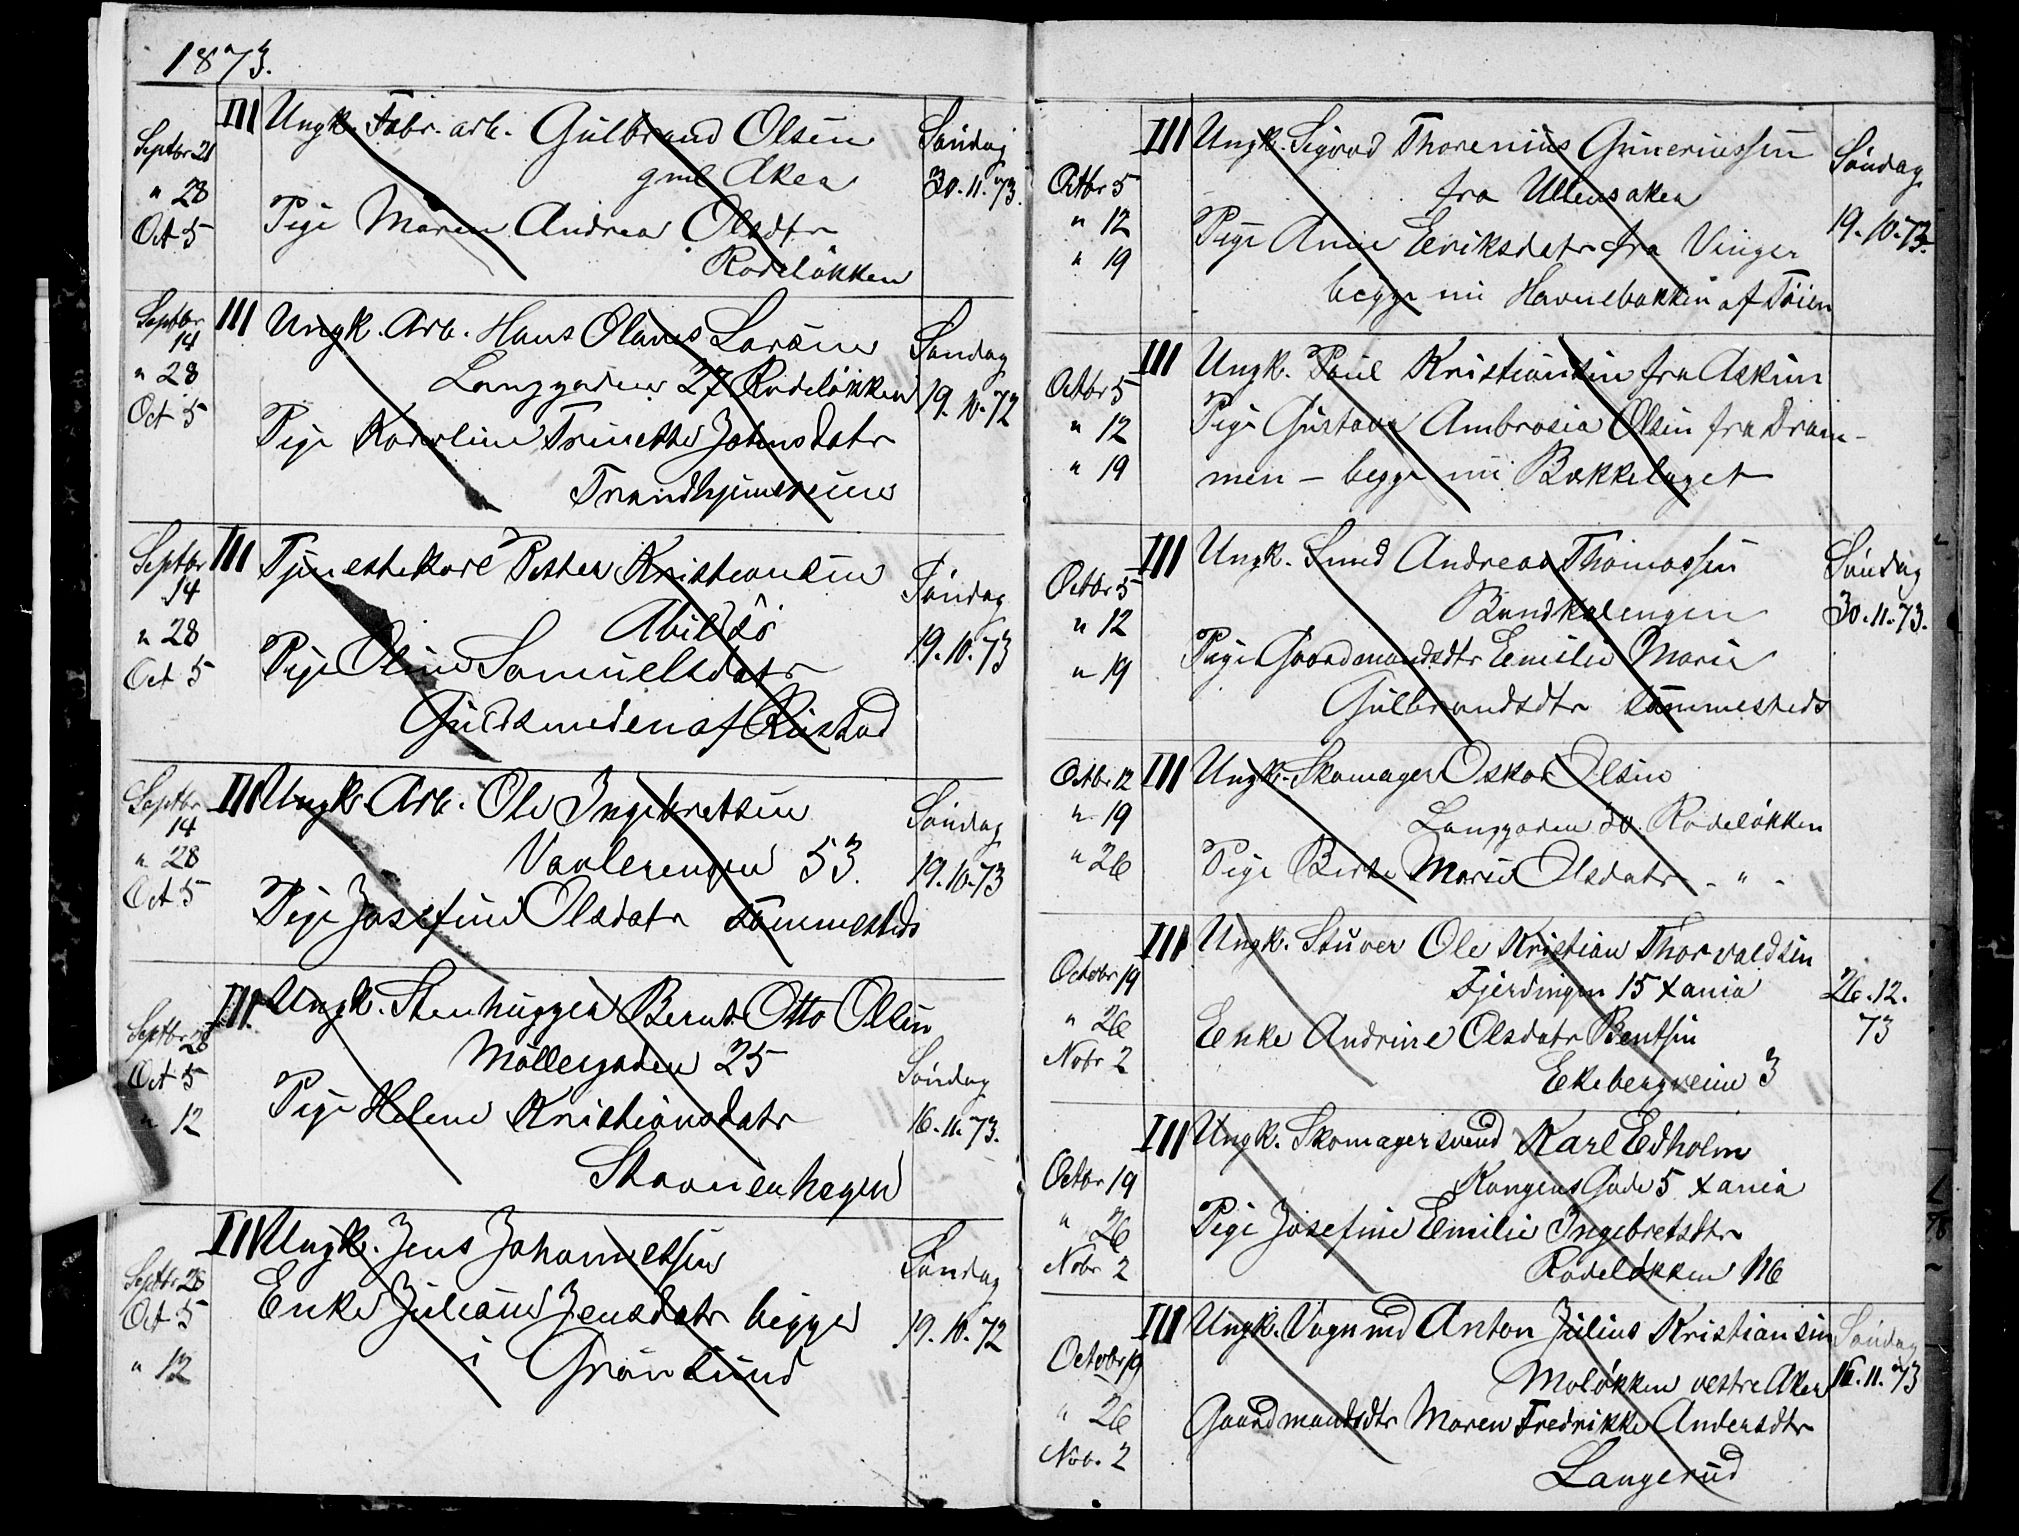 1873.
III Ungk. Fabr. arb. Gulbrand Olsen
Septbr 21
" 28
Oct 5
gml Aker
Pige Maren Andrea Olsdtr
Rodeløkken
Søndag
30.11.73.
Septbr
14
" 28
Oct 5
III Ungk. Arb. Hans Olaus Larsen
Langgaden 27 Rodeløkken
Pige Karoline Trinette Johnsdatr
Trondhjemsveien
Søndag
19.10.72
Septbr
14
" 28
Oct 5
III Tjenestekarl Petter Kristiansen
Abildsø
Pige Oline Samuelsdatr
Guldsmeden af Rustad
Søndag
19.10.73
Septbr
14
" 28
Oct 5
III Ungk. Arb. Ole Ingebretsen
Vaalerengen 53.
Pige Josefine Olsdatr sammesteds
Søndag
19.10.73
Septbr 28
Oct 5
" 12
III. Ungk. Stenhugger Bernt Otto Olsen
Møllergaden 25
Pige Helene Kristiansdatr
Stavnenhagen
Søndag
16.11.73.
Septbr 28
Oct 5
" 12
III Ungk. Jens Johannessen
Enke Juliane Jensdatr begge
i Grønsund
Søndag
19.10.72
Octbr 5
" 12
" 19
III Ungk. Sigvad Thorenius Guneriussen
fra Ullensaker
Pige Anne Eriksdatr fra Vinger
begge nu Havnebakken af Tøien
Søndag
19.10.73.
Octbr 5
" 12
" 19
III Ungk. Paul Kristiansen fra Askim
Pige Gustava Ambrosia Olsen fra Dram-
men – begge nu Bækkelaget
Octbr 5
" 12
" 19
III Ungk. Smed Andreas Thomassen
Bundkalengen
Pige Gaardmandsdtr Emilie Marie
Gulbrandsdtr sammesteds
Søndag
30.11.73.
Octbr 12
" 19
" 26
III Ungk. Skomager Oskar Olsen
Langgaden 30. Rodeløkken
Pige Berte Marie Olsdatr - " -
Octobr 19
" 26
Nobr 2
III Ungk. Stuver Ole Kristian Thorvaldsen
Fjerdingen 15 Xania
Enke Andrine Olsdatr Bentsen
Ekebergveien 3
26.12.
73
Octbr 19
" 26
Nobr 2
III Ungk. Skomagersvend Karl Edholm
Kongens Gade 5 Xania
Pige Josefine Emilie Ingebretsdtr
Rodeløkken 116
Octobr 19
" 26
Nob. 2
III Ungk. Vognmd Anton Julius Kristiansen
Moløkken vestre Aker
Gaardmandsdtr Maren Fredrikke Andersdtr
Langerud
Søndag
16.11.73